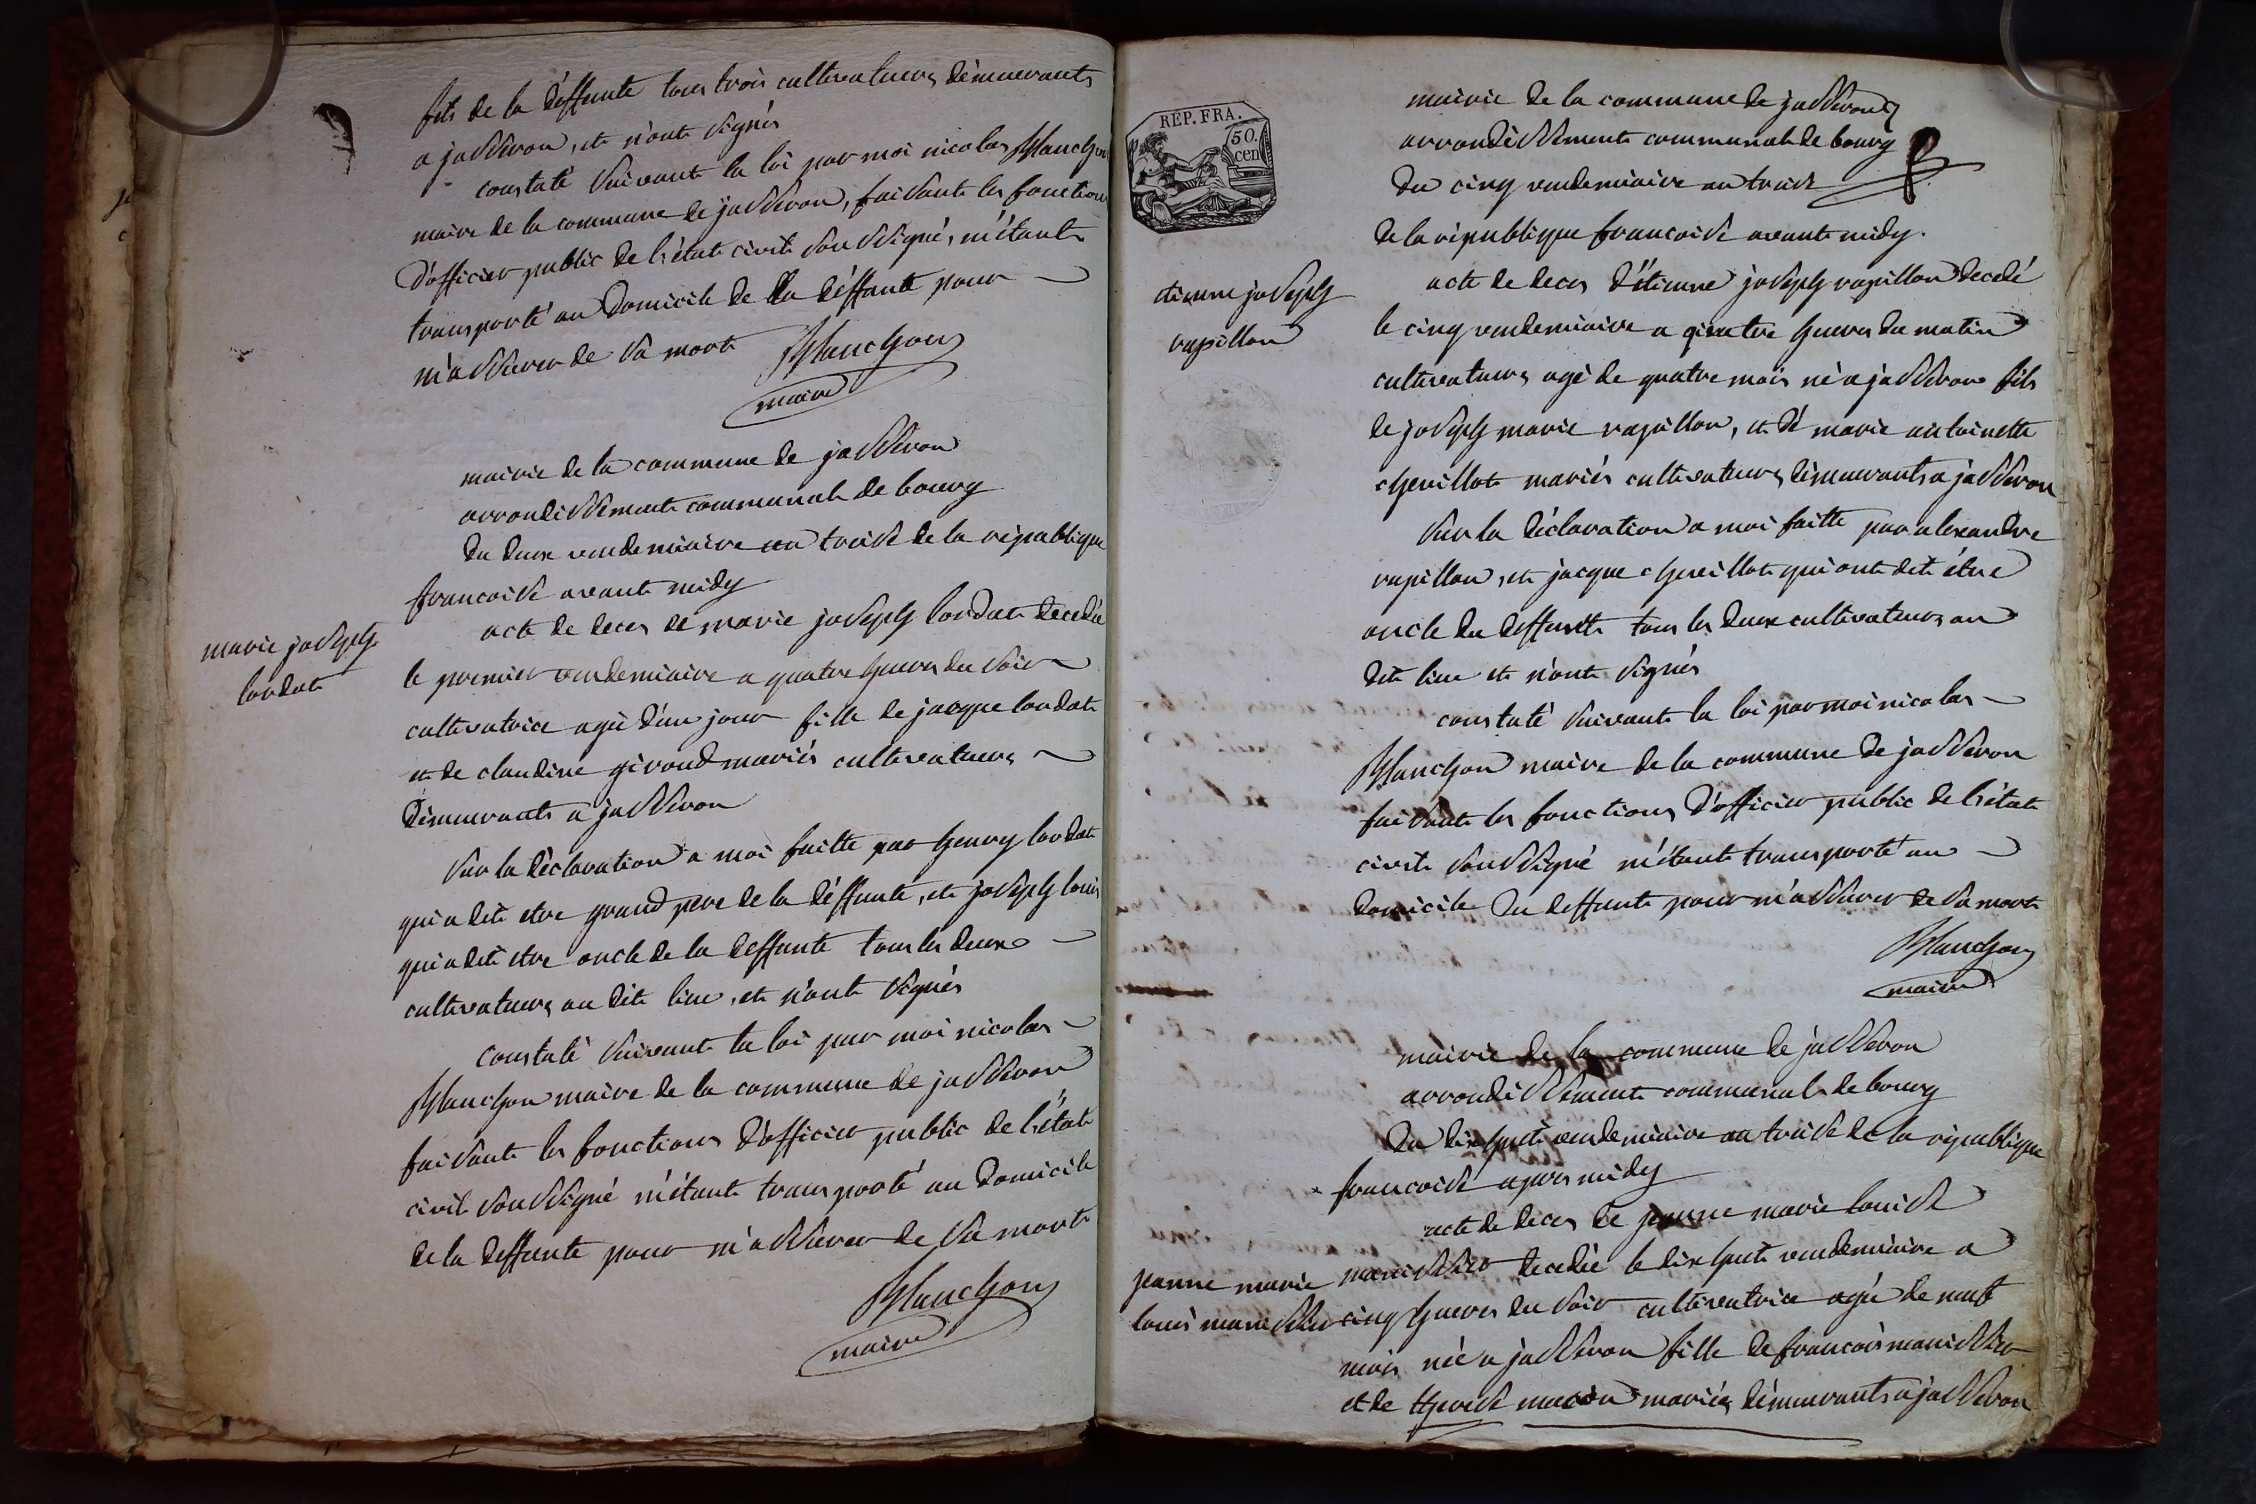 fils de la déffunte tous trois cultivateurs démeurants
a jasseron, et n'ont signés
constaté suivant la loi par moi nicolas Blanchon
maire de la commune de jasseron, faisant les fonctions
d'officier public de l'état civil soussigné, m'étant
transporté au domicile de la déffunte pour
m'assurer de sa mort Blanchon
maire
mairie de la commune de jasseron
arrondissement communal de bourg
du deux vendemiaire an treise de la république
francoise avant midy
marie joseph
londat
acte de deces de marie joseph londat decedée
le premier vendemiaire a quatre heures du soir
cultivatrice agée d'un jour fille de jacque londat
et de claudine giroud mariés cultivateurs
démeurants a jasseron
sur la déclaration a moi faitte par henry londat
qui a dit etre grand pere de la déffunte, et joseph louis
qui a dit etre oncle de la deffunte tous les deux
cultivateurs au dit lieu, et n'ont signés
constaté suivant la loi par moi nicolas
Blanchon maire de la commune de jasseron
faisant les fonctions d'officier public de l'état
civil soussigné m'étant transporté au domicile
de la deffunte pour m'assurer de sa mort
Blanchon
maire
REP. FRA.
50.
cen
mairie de la commune de jasseron
arrondissement communal de bourg
du cinq vendemiaire an treise
de la république francoise avant midy.
etienne joseph
rapillon
acte de deces d'étienne joseph rapillon decedé
le cinq vendemiaire a quatre heures du matin
cultivateurs agé de quatre mois né a jasseron fils
de joseph marie rapillon, et dé marie antoinette
chevillot mariés cultivateurs démeurants a jasseron
sur la déclaration a moi faitte par alexandre
rapillon, et jacque chevillot qui ont dit étre
oncle du deffuntt tous les deux cultivateurs au
dit lieu et n'ont signés
constaté suivant la loi par moi nicolas
Blanchon maire de la commune de jasseron
faisant les fonctions d'officier public de l'état
civil soussigné m'étant transporté au
domicile du deffunt pour m'assurer de sa mort
Blanchon
maire
mairie de la commune de jasseron
arrondissement communal de bourg
du dix huit vendemiaire an treise de la république
francoise apres midy
jeanne marie
louis manissier
acte de deces de jeanne marie louise
manissier decedée le dix huit vendemiaire a
cinq heures du soir cultivatrice agée de neuf
mois née a jasseron fille de francois manissier
et de therese macon mariés démeurants a jasseron